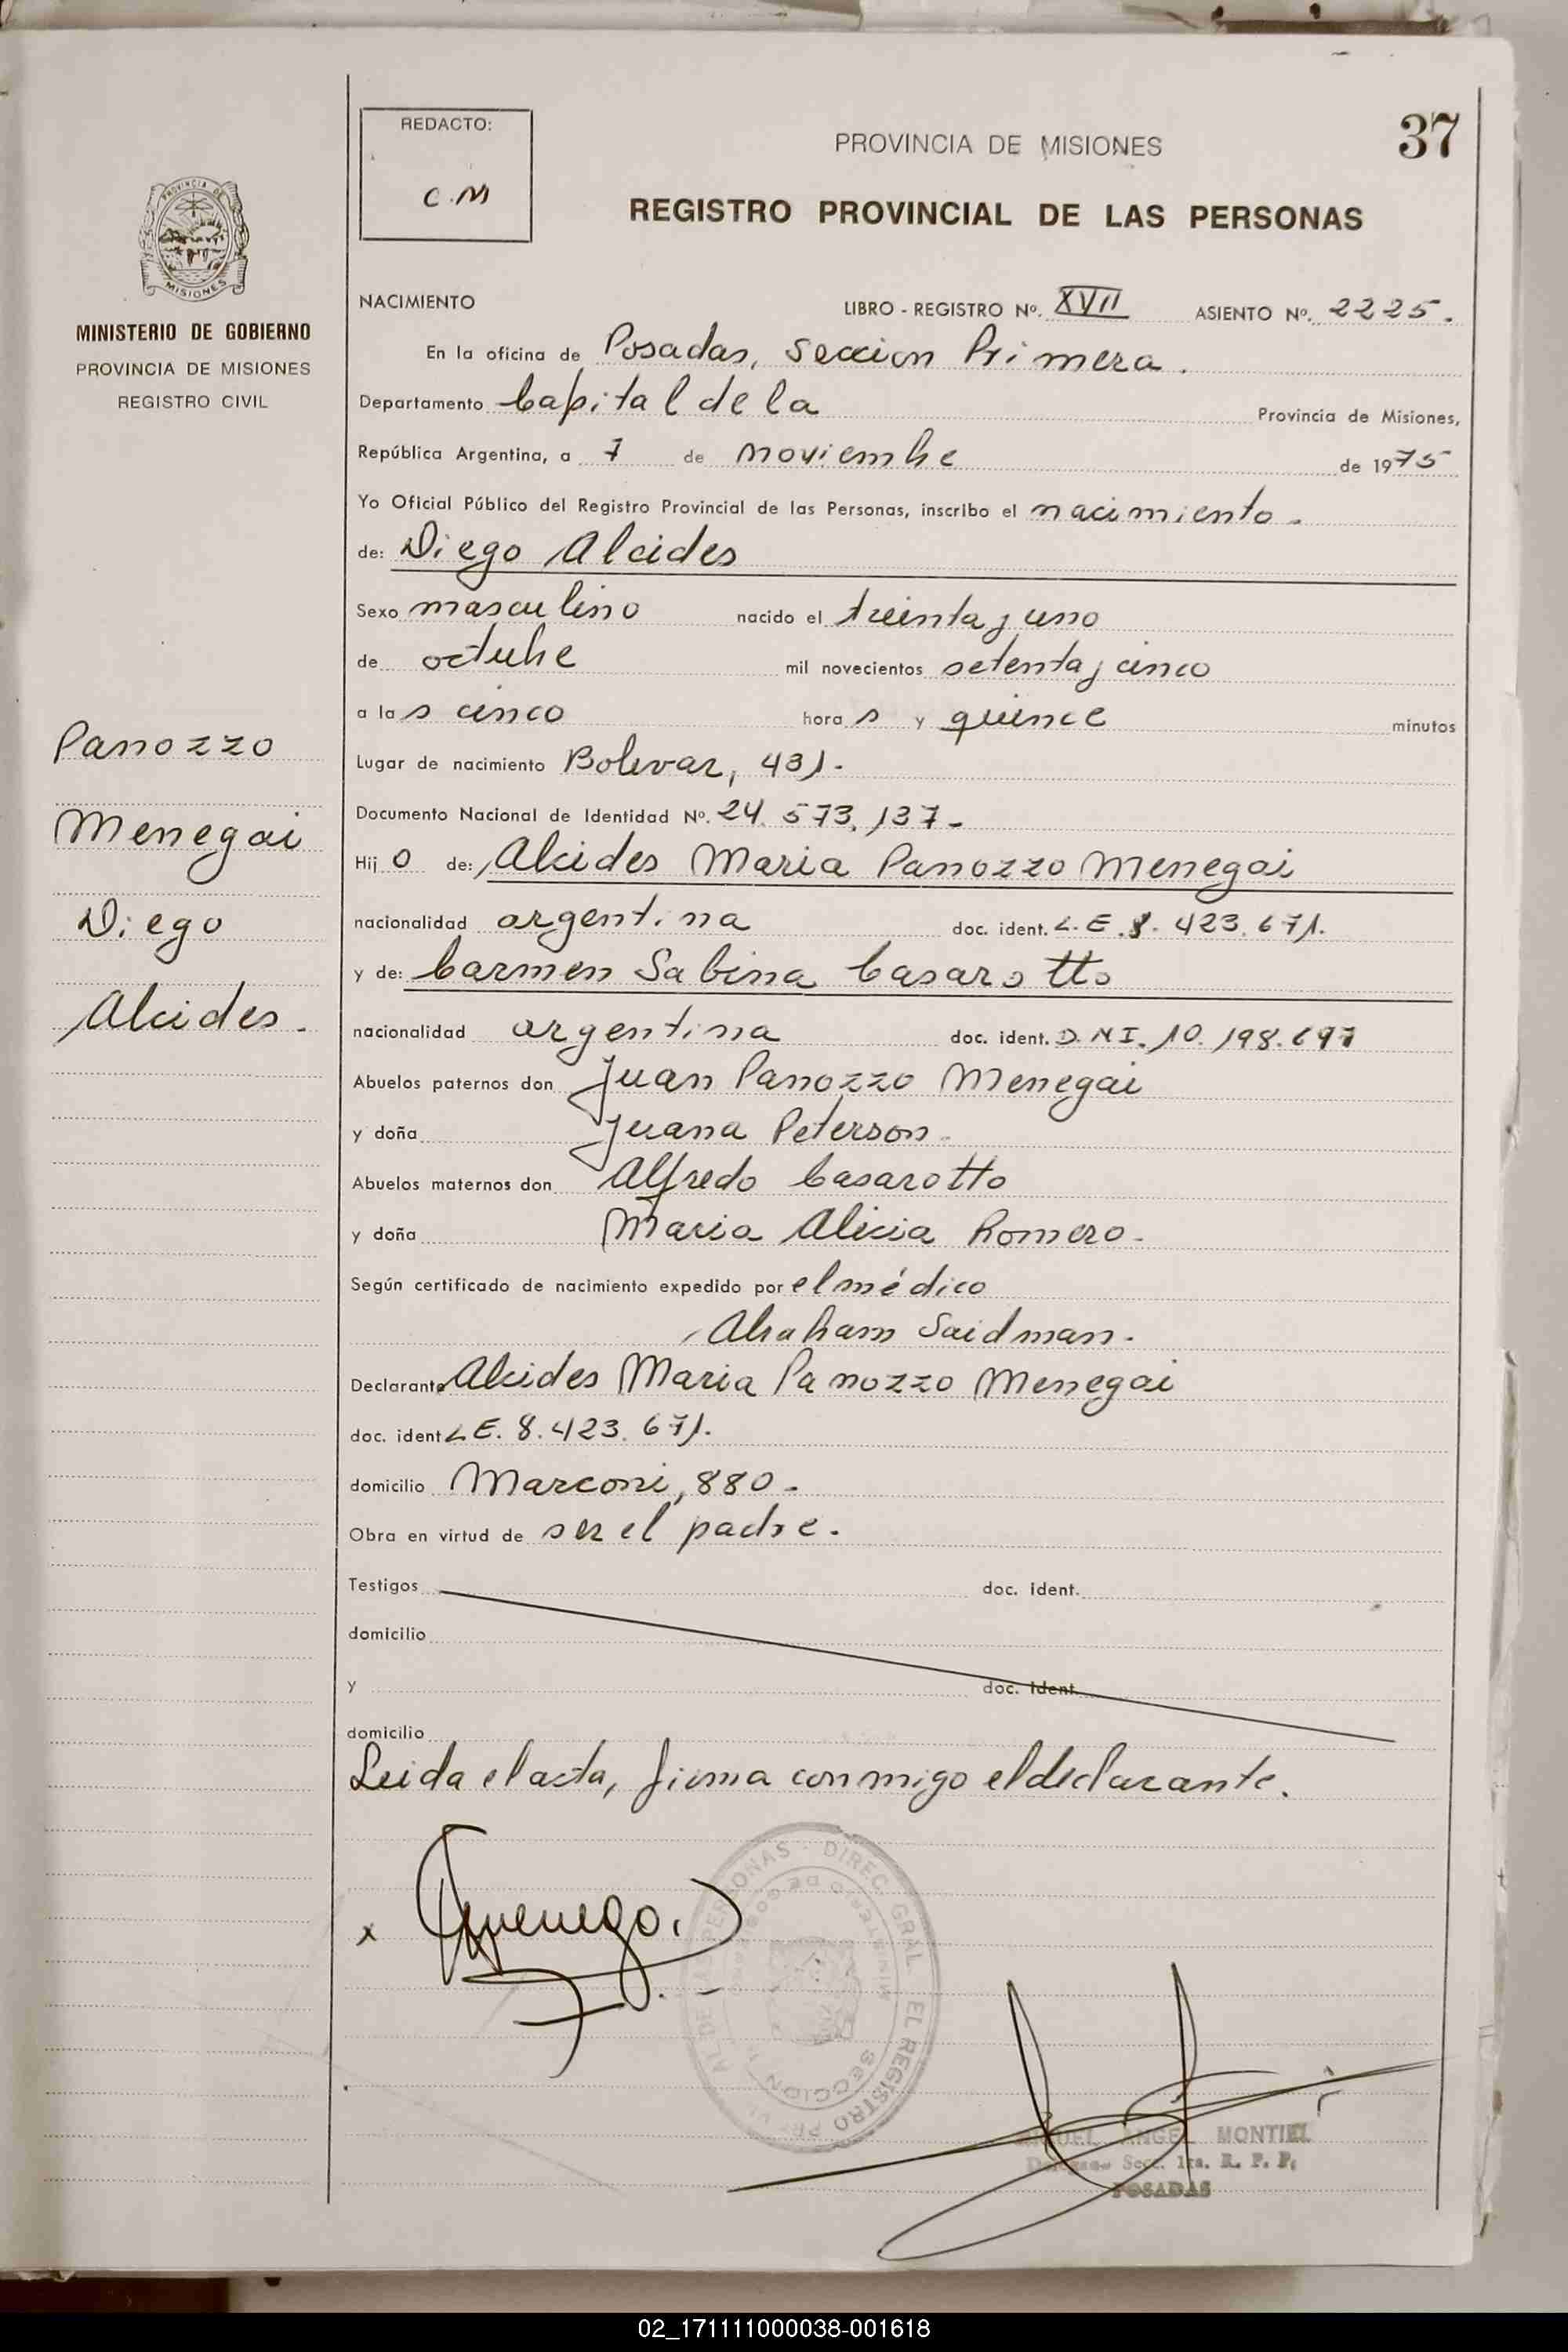 37
REDACTO:
C.M
PROVINCIA DE MISIONES
REGISTRO PROVINCIAL DE LAS PERSONAS
PROVINCIA DE
MISIONES
MINISTERIO DE GOBIERNO
PROVINCIA DE MISIONES
REGISTRO CIVIL
Panozzo
Menegai
Diego
Alcides.
NACIMIENTO LIBRO - REGISTRO Nº. XVII ASIENTO Nº. 2225.
En la oficina de Posadas, Seccion Primera.
Departamento Capital de la Provincia de Misiones,
República Argentina, a 7 de noviembre de 1975
Yo Oficial Público del Registro Provincial de las Personas, inscribo el nacimiento.
de: Diego Alcides
Sexo masculino nacido el treinta y uno
de octubre mil novecientos setenta y cinco
a las cinco horas y quince minutos
Lugar de nacimiento Bolivar, 431.
Documento Nacional de Identidad Nº. 24.573.137-
Hijo de: Alcides Maria Panozzo Menegai
nacionalidad argentina doc. ident. L.E. 8.423.671.
y de: Carmen Sabina Casarotto
nacionalidad argentina doc. ident. D.N.I. 10.198.697
Abuelos paternos don Juan Panozzo Menegai
y doña Juana Peterson.
Abuelos maternos don Alfredo Casarotto
y doña Maria Alicia Romero.
Según certificado de nacimiento expedido por el médico
Abraham Saidman.
Declarante Alcides Maria Panozzo Menegai
doc. ident L.E. 8.423.671.
domicilio Marconi, 880.
Obra en virtud de ser el padre.
Testigos doc. ident.
domicilio
y doc. ident.
domicilio
Leida el acta, firma conmigo el declarante.
x
DIREC. GRAL. EL REGISTRO PERSONAS
SECCION
ANGEL MONTIEL
Secc. 1ra. R. P. P.
POSADAS
02_171111000038-001618